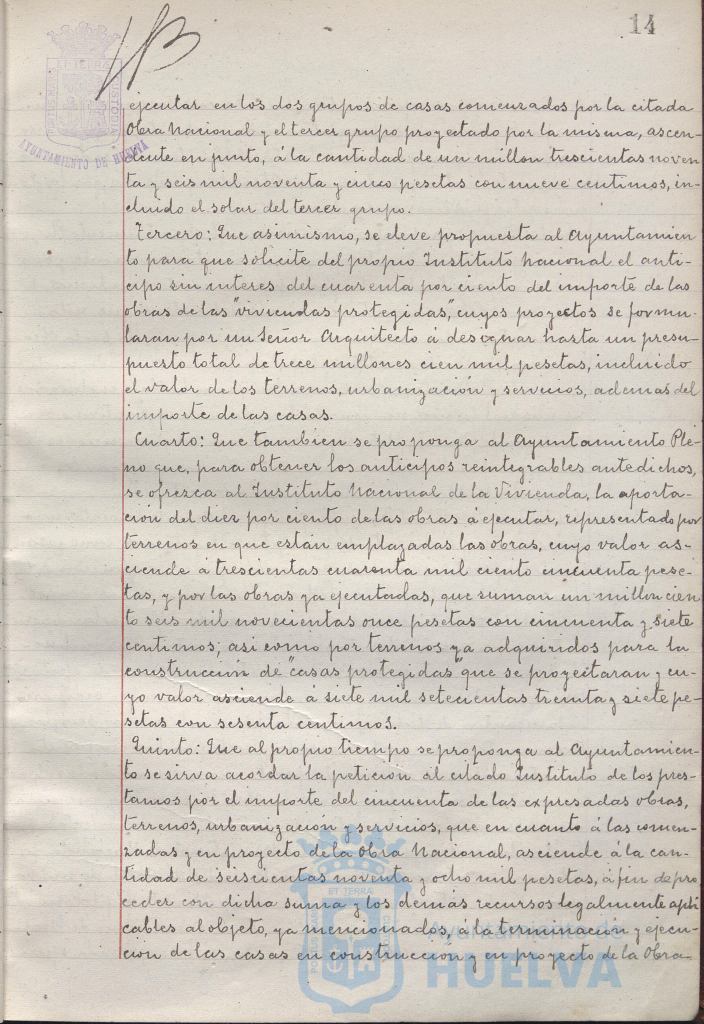 14
ejecutar en los dos grupos de casas comenzados por la citada
Obra Nacional y el tercer grupo proyectado por la misma, ascen-
dente en junto, á la cantidad de un millon trescientas noven
ta y seis mil noventa y cinco pesetas con nueve centimos, in-
cluido el solar del tercer grupo.
Tercero: Que asimismo, se eleve propuesta al Ayuntamien
to para que solicite del propio Instituto Nacional el anti-
cipo sin interes del cuarenta por ciento del importe de las
obras de las "viviendas protegidas", cuyos proyectos se formu-
laran por un Señor Arquitecto á designar hasta un presu-
puesto total de trece millones cien mil pesetas, incluido
el valor de los terrenos, urbanización y servicios, ademas del
importe de las casas.
Cuarto: Que tambien se proponga al Ayuntamiento Ple-
no que, para obtener los anticipos reintegrables antedichos,
se ofrezca al Instituto Nacional de la Vivienda, la aporta-
ción del diez por ciento de las obras á ejecutar, representado por
terrenos en que están emplazadas las obras, cuyo valor as-
ciende á trescientas cuarenta mil ciento cincuenta pese-
tas, y por las obras ya ejecutadas, que suman un millon cien
to seis mil novecientas once pesetas con cincuenta y siete
centimos; asi como por terrenos ya adquiridos para la
construcción de "casas protegidas" que se proyectaran y cu-
yo valor asciende á siete mil setecientas treinta y siete pe-
setas con sesenta centimos.
Quinto: Que al propio tiempo se proponga al Ayuntamien-
to se sirva acordar la petición al citado Instituto de los pres-
tamos por el importe del cincuenta de las expresadas obras,
terrenos, urbanización y servicios, que en cuanto á las comen-
zadas y en proyecto de la Obra Nacional, asciende á la can-
tidad de seiscientas noventa y ocho mil pesetas, á fin de pro
ceder con dicha suma y los demás recursos legalmente apli
cables al objeto, ya mencionados, á la terminación y ejecu-
ción de las casas en construcción y en proyecto de la Obra-
AYUNTAMIENTO DE HUELVA
ET TERRA
Ayuntamiento de
HUELVA